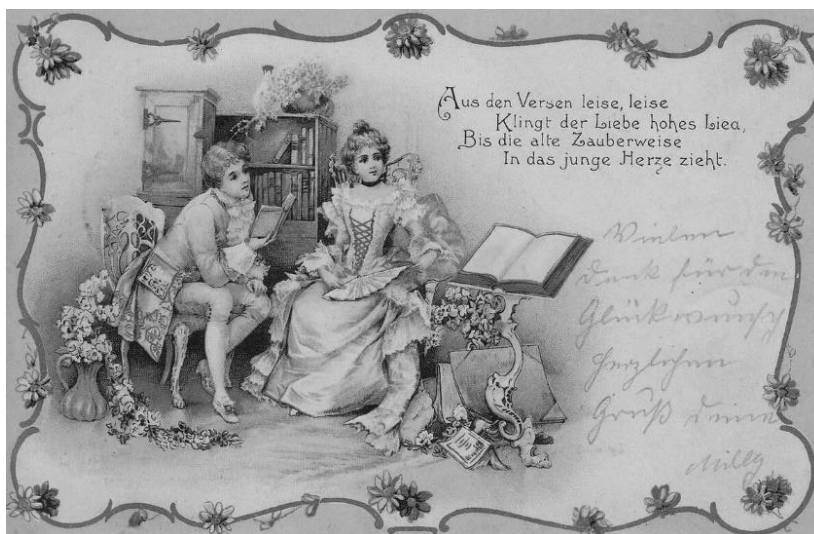 Aus den Versen leise, leise
Klingt der Liebe hohes Lied,
Bis die alte Zauberweise
In das junge Herze zieht.
Vielen
Dank für den
Glückwunsch
Herzlichen
Gruß deine
Milly